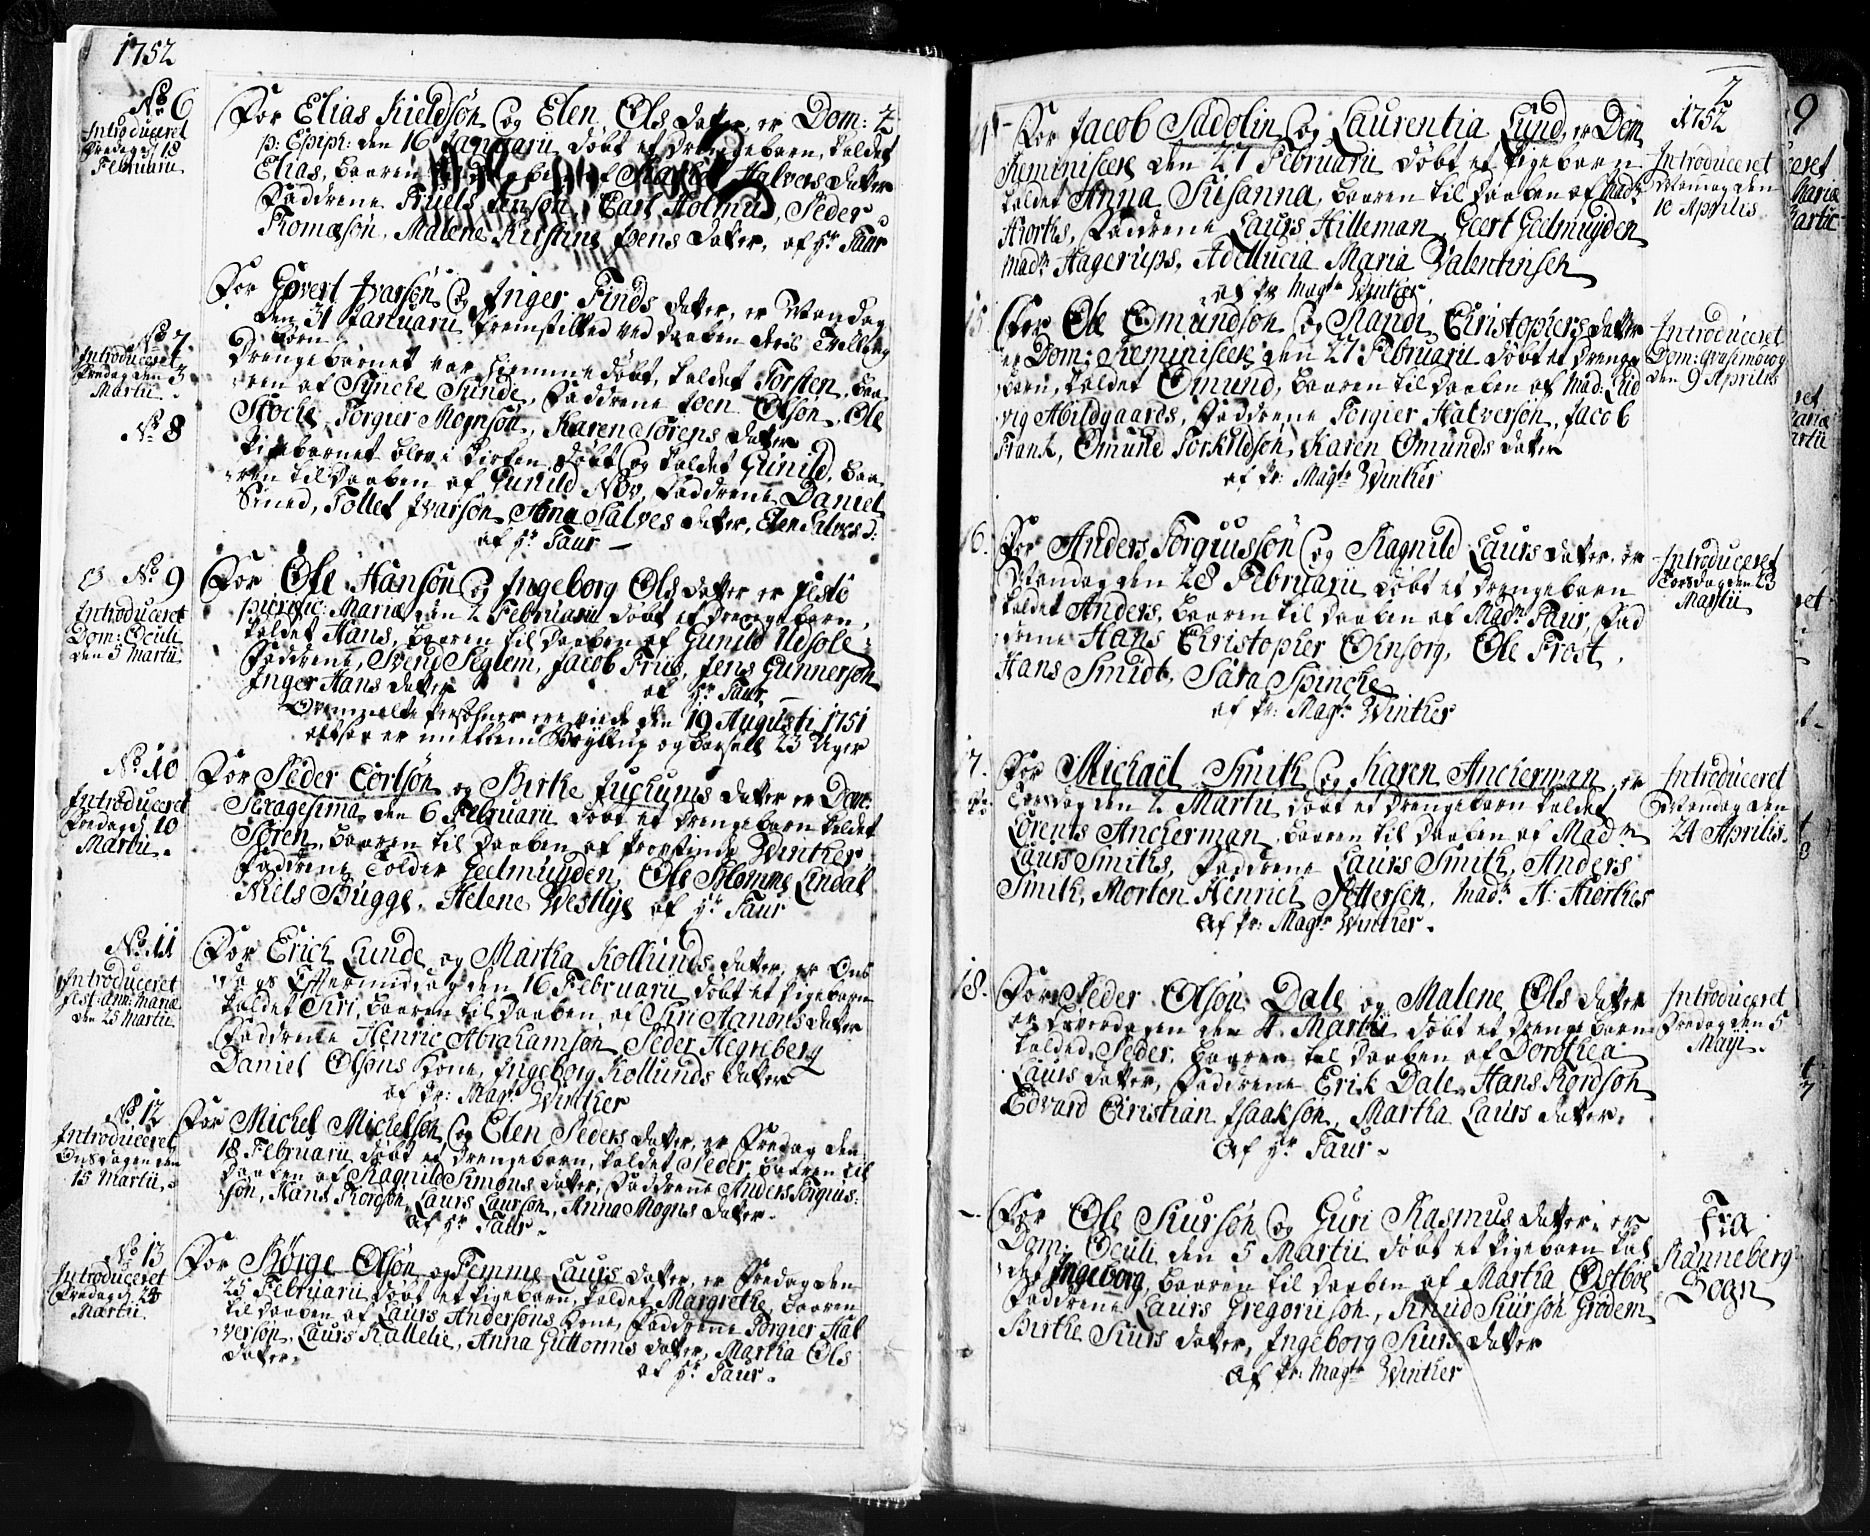 1752
No 6
Introduceret
Fredag d: 18
Februarii
For Elias Kieldsøn og Elen Ols datter, er Dom: 2
p: Epiph: den 16 Januarii, døbt et Drengebarn, kaldet
Elias, baaren Halvers datter
Faddrene Truels Jensøn, Carl Holmus, Peder
Tromæsøn, Malene Kirstine Joens datter, af Hr Faur
For Govert Ivarsøn og Inger Finds datter, er Mandag
den 31 Januarii fremstilled ved daaben deris Tvilling
børn
No 7
Introduceret
Fredag den 3
Martii.
Drengebarnet var hiemme døbt, kaldet Torsten, baa-
ren af Synche Sunde, Faddrene Joen Olson, Ole
Stoche, Torgier Mognsøn, Karen Sørens datter
No 8
Pigebarnet blev i Kirken døbt og kaldet Gunild, baa-
ren til daaben af Gunild Nov, Faddrene Daniel
Smed, Tollef Ivarsøn, Anna Salves datter, Elen Salves d:
af Hr Faur
No 9
Introduceret
Dom: Oculi
den 5 Martii
For Ole Hansøn og Ingeborg Ols datter er Festo
purific: Mariæ den 2 Februarii døbt et drengebarn,
kaldet Hans, baaren til daaben af Gunild Udsole,
Faddrene, Svend Seglem, Jacob Friis, Jens Gunnersøn
Inger Hans datter af Hr Faur
Ommelte Persohner ere viede den 19 Augusti 1751
altsaa er imellem Bryllup og barsell 23 Uger
No 10
Introduceret
Fredag d. 10
Martii.
For Peder Corlsøn og Birthe Juchums datter er Dom:
Sexagesima, den 6 Februarii døbt et drengebarn kaldet
Søren, baaren til daaben af Provstinde Winther
Faddrene Tolder Geelmuyden, Ole Blomme Lindal
Niels Bugge, Helene Westlye af Hr Faur
No 11
Introduceret
Fest: Ann: Mariæ
den 25 Martii
For Erich Lunde og Martha Kollunds datter, er Ons
dags Eftermiddag den 16 Februarii døbt et Pigebarn
kaldet Siri, baaren til daaben af Siri Aanons datter
Faddrene Henric Abrahamsøn, Peder Hegreberg
Daniel Olsons Kone, Ingeborg Kollunds datter
af Pr: Magr Winther
No 12
Introduceret
Onsdagen den
15 Martii.
For Michel Michelsøn og Elen Peders datter, er Fredag den
18 Februarii døbt et drengebarn, kaldet Peder, baaren til
daaben af Ragnild Simons datter, Faddrene Anders Torgius:
søn, Hans Thordsøn, Laurs Laursøn, Anna Mogns datter.
Af Hr Faur.
No 13
Introduceret
Fredag d. 24
Martii.
For Børge Olsøn og Temme Laurs datter, er Fredag den
25 Februarii døbt et Pigebarn, kaldet Margrethe, baaren
til daaben af Laurs Andersøns Kone, Faddrene Torgier Hal
versøn, Laurs Kallelie, Anna Guttorms datter, Martha Ols
datter. af Hr Faur.
2
1752
For Jacob Sadolin og Laurentia Lund, er Dom
Reminiscere den 27 Februarii døbt et Pigebarn
kaldet Anna Susanna, baaren til daaben af Madm
Hiorths, Faddrene Laurs Hilleman, Geert Geelmuyden
Madm Hagerups, Adellucia Maria Valentinsen
af Pr Magr Winther
Introduceret
Mandag den
10 Aprilis
For Ole Omundsøn og Randi Christophers datter
er Dom: Reminiscere den 27 Februarii døbt et drenge
barn, kaldet Omund, baaren til daaben af Mad: Lud
vig Abildgaards, Faddrene Torgier Halversøn, Jacob
Frank, Omund Torkildsøn, Karen Omunds datter
af Pr: Magr Winther
Introduceret
Dom: Qvasimodog
den 9 Aprilis
16.
For Anders Torgiussøn og Ragnild Laurs datter, er
Mandag den 28 Februarii døbt et drengebarn
kaldet Anders, baaren til daaben af Madm Faur, Fad
drene Hans Christopher Øinsorg, Ole Frost,
Hans Smidt, Sara Spinche
af Pr: Magr Winther
Introduceret
Torsdag den 23
Martii
17.
For Michaël Smith og Karen Ancherman, er
Torsdag den 2 Martii døbt et drengebarn kaldet
Lorents Ancherman, baaren til daaben af Madm
Laurs Smiths, Faddrene Laurs Smith, Anders
Smith, Morten Henrich Pettersen, Madm H: Hiorthes
Af Pr: Magr Winther.
Introduceret
Mandag den
24 Aprilis.
18.
For Peder Olsøn Dale og Malene Ols datter
er Løverdagen den 4. Martii døbt et drengebarn
kalded Peder, baaren til daaben af Dorothea
Laurs datter, Faddrene Erik Dale, Hans Thordsøn
Edvard Christian Isaaksøn, Martha Laurs datter.
Af Hr Faur.
Introduceret
Fredag den 5
Maji.
For Ole Siursøn og Guri Rasmus datter, er
Dom: Oculi den 5 Martii døbt et Pigebarn kal
det Ingeborg, baaren til daaben af Martha Østbøe
Faddrene Laurs Gregoriisøn, Knud Siursøn Grødem
Birthe Siurs datter, Ingeborg Siurs datter
Af Pr: Magr Winther
Fra
Ranneberg
Sogn